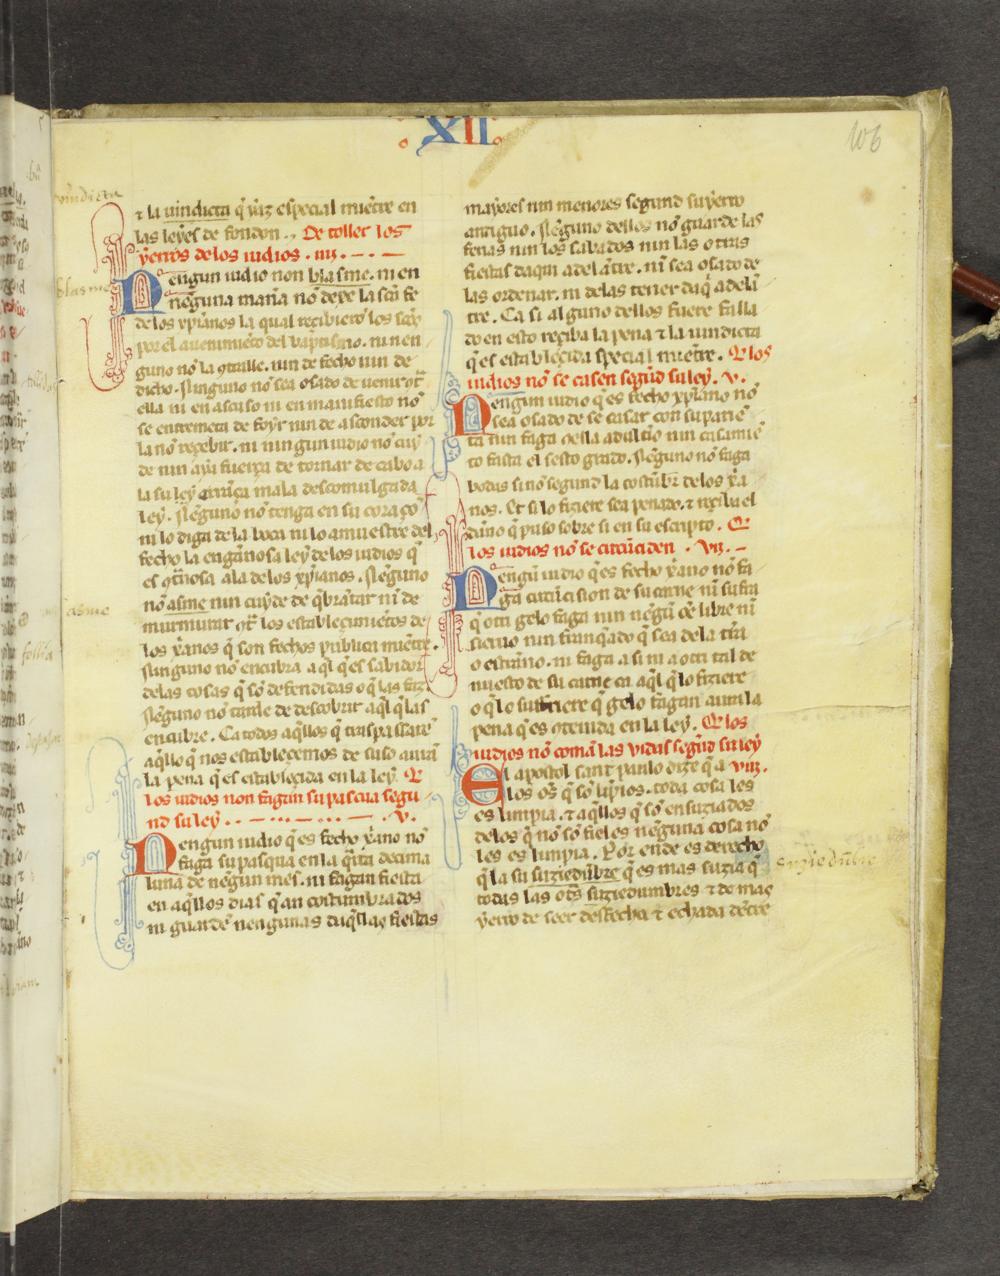 XII
106
vindicta
⁊ la uindicta q̃ yaz especial miẽtre en
las leyes de fondon. De toller los
yerros de los iudios . iiij.
Nengun iudio non blasme. ni en
neguna mañа nõ dexe la scã fe
de los xp̃ianos la qual reçibierõ los
por el auenimiẽto del baptismo. nin en
guno nõ la 9tralle. nin de fecho nin de
dicho. Ninguno nõ sea osado de uenir 9tͣ
ella ni en ascuso ni en manifiesto nõ
se entremeta de foyr nin de asconder por
la nõ reçebir. ni ningun iudio nõ cuy
de nin aya fuerça de tornar de cabo a
la su ley mala descomulgada
ley. Neguno nõ tenga en su coraçõ
ni lo diga de la boca ni lo amuestre del
fecho la engañosa ley de los iudios q̃
es 9tͣriosa a la de los xp̃ianos. Neguno
nõ asme nin cuyde de q̃brãtar ni de
murmurar 9tͣ los estableçimiẽtos de
los xͣanos q̃ son fechos publica miẽtre.
Ninguno nõ encubra aq̃l q̃ es sabidor
delas cosas q̃ sõ defendidas o q̃ las faz.
Neguno nõ tarde de descobrir aq̃l q̃ las
encubre. Ca todos aq̃llos q̃ traspassarẽ
aq̃llo q̃ nos estableçemos de suso aurã
la pena q̃ es establesçida en la ley. Q̃
los iudios non fagan su pascua segu
nd su ley . v.
Nengun iudio q̃ es fecho xͣano nõ
faga su pasqua en la q̃rta decima
luna de negun mes. ni fagan fiesta
en aq̃llos dias q̃ an costumbrados
ni guardẽ nengunas daq̃llas fiestas
mayores nin menores segund su yerro
antiguo. Neguno dellos nõ guarde las
ferias nin los sabados nin las otras
fiestas daqui adelãtre. ni sea osado de
las ordenar. ni delas tener daq̃ adelã
tre. Ca si alguno dellos fuere falla
do en esto reçiba la pena ⁊ la uindicta
q̃ es establecida special miẽtre. Q̃ los
iudios nõ se casen segũd su ley. v.
Nengun iudio q̃ es fecho xp̃iano nõ
sea osado de se casar con su pariẽ
ta nin faga nin casamiẽ
to fasta el sesto grado. Neguno nõ faga
bodas sinõ segund la costũbr̃ delos xͣa
nos. Et si lo fiziere sea penado. ⁊ reçiba el
daño q̃ puso sobre si en su escripto. Q̃
los iudios nõ se circũciden . vij.
Nengũ iudio q̃ es fecho xͣano nõ fa
ga circũcision de su carne ni sufra
q̃ otri gelo faga nin negũ õe libre ni
sieruo nin franq̃ado q̃ sea dela trͣa
o estraño. ni faga a si ni a otri tal de
nuesto de su carne ca aq̃l q̃ lo fiziere
o q̃ lo sufriere q̃ gelo fagan aura la
pena q̃ es en la ley. Q̃ los
iudios nõ comã las vidas segũd su ley
El apostol sant paulo dize q̃ a viij.
los os̃ q̃ sõ lĩpios. toda cosa les
es limpia. ⁊ aq̃llos q̃ sõ ensuziados
delos q̃ nõ sõ fieles neguna cosa nõ
les es limpia. Por ende es derecho
q̃ la su suziedũbre q̃ es mas suzia q̃
todas las ots̃ suziedumbres ⁊ de mas
yerro de seer desfecha ⁊ echada dẽtre
blasme
asme
suziedũbre